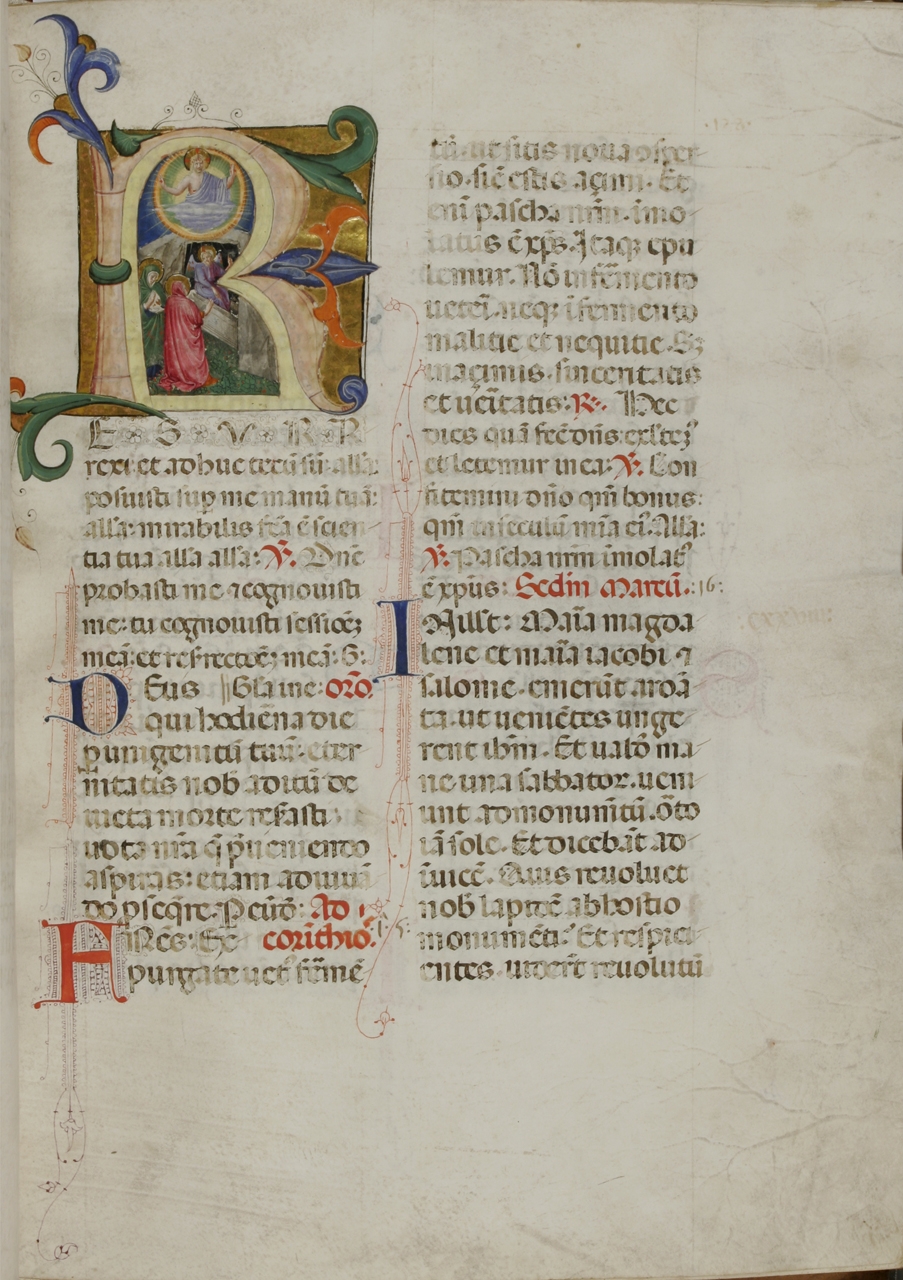 R
E S V R R
rexi et adhuc tecū sū alła:
posuisti sup me manū tuā:
alła: mirabilis fca ē scien
tia tua alła alła: V. Dn̄e
probasti me ⁊cognouisti
me: tu cognouisti sessiōeȝ
meā: et resrectōeȝ meā: G:
Deus Głia me: orō
qui hodiēna die
p unigenitū tuū eter
nitatis nob aditū de
uicta morte reseasti
uota nr̄a q̄ p̄ueniendo
aspiras: etiam adiuuā
do pseq̄re. P eūd̄: Ad
Fr̄ēs: Ex corīthio. i. 5:
purgate uet' fr̄mē
tū. ut sitis noua ꝯsper
sio. sic̄ estis açimi. Et
eni pascha nr̄m. īmo
latus ē xp̄s. Itaqꝫ epu
lemur. Nō in fr̄mento
ueteri. neqꝫ ī fermento
malitie et nequitie. Sꝫ
in açimis. sinceritatis
et ueritatis: R. Hec
dies quā fec̄ dn̄s: exłteꝫ
et letemur in ea: V. Con
fitemini dn̄o qm̄ bonus:
qm̄ in seculū mīa eī. Alła:
V. Pascha nr̄m īmolat'
ē xp̄us: Sedm̄ Marcū. 16:
In illt: Maīa magda
lene et maīa iacobi ⁊
salome. emerūt aroā
ta. ut ueniētes unge
rent ihm̄. Et ualđ ma
ne una sabbator. ueni
unt ad monum̄tū. oīto
iā sole. Et dicebāt ad
īuicē. Quis reuoluet
nob lapidē ab hostio
monumēti. Et respici
entes. uider̄t reuolutū